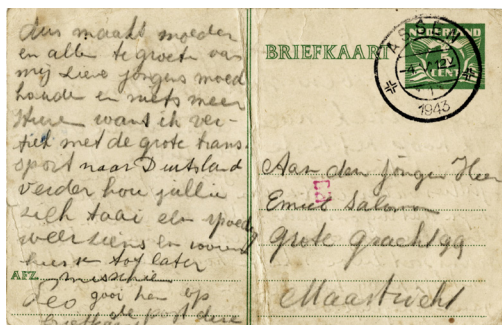 dus maakt moeder
en allen te groeten van
mij Lieve jongens moed
houden en niets meer
sturen want ik ver-
trek met de grote trans-
port naar Duitsland
verder hou jullie
zich taai een spoedig
weerziens en
tot later
AFZ. misschie
Leo gooi hem op
post deze
BRIEFKAART
NEDERLAND
CENT
1943
Aan den jonger Heer
Emiel Salomon
Grote gracht 99
Maastricht